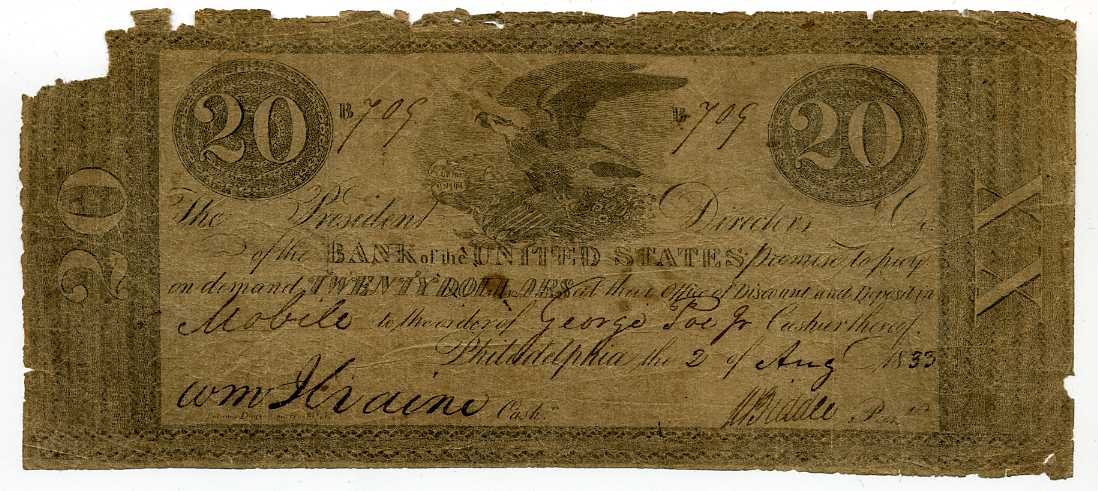 20 B 709 B 709 20
The President Directors &Co.
of the BANK of the UNITED STATES promise to pay
on demand TWENTY DOLLARS at their Office of Discount and Deposit in
Mobile to the order of George Poe Jr Cashier thereof.
Philadelphia the 2 of Aug 1833
Wm Cash.r N Biddle Pres.t
20
XX